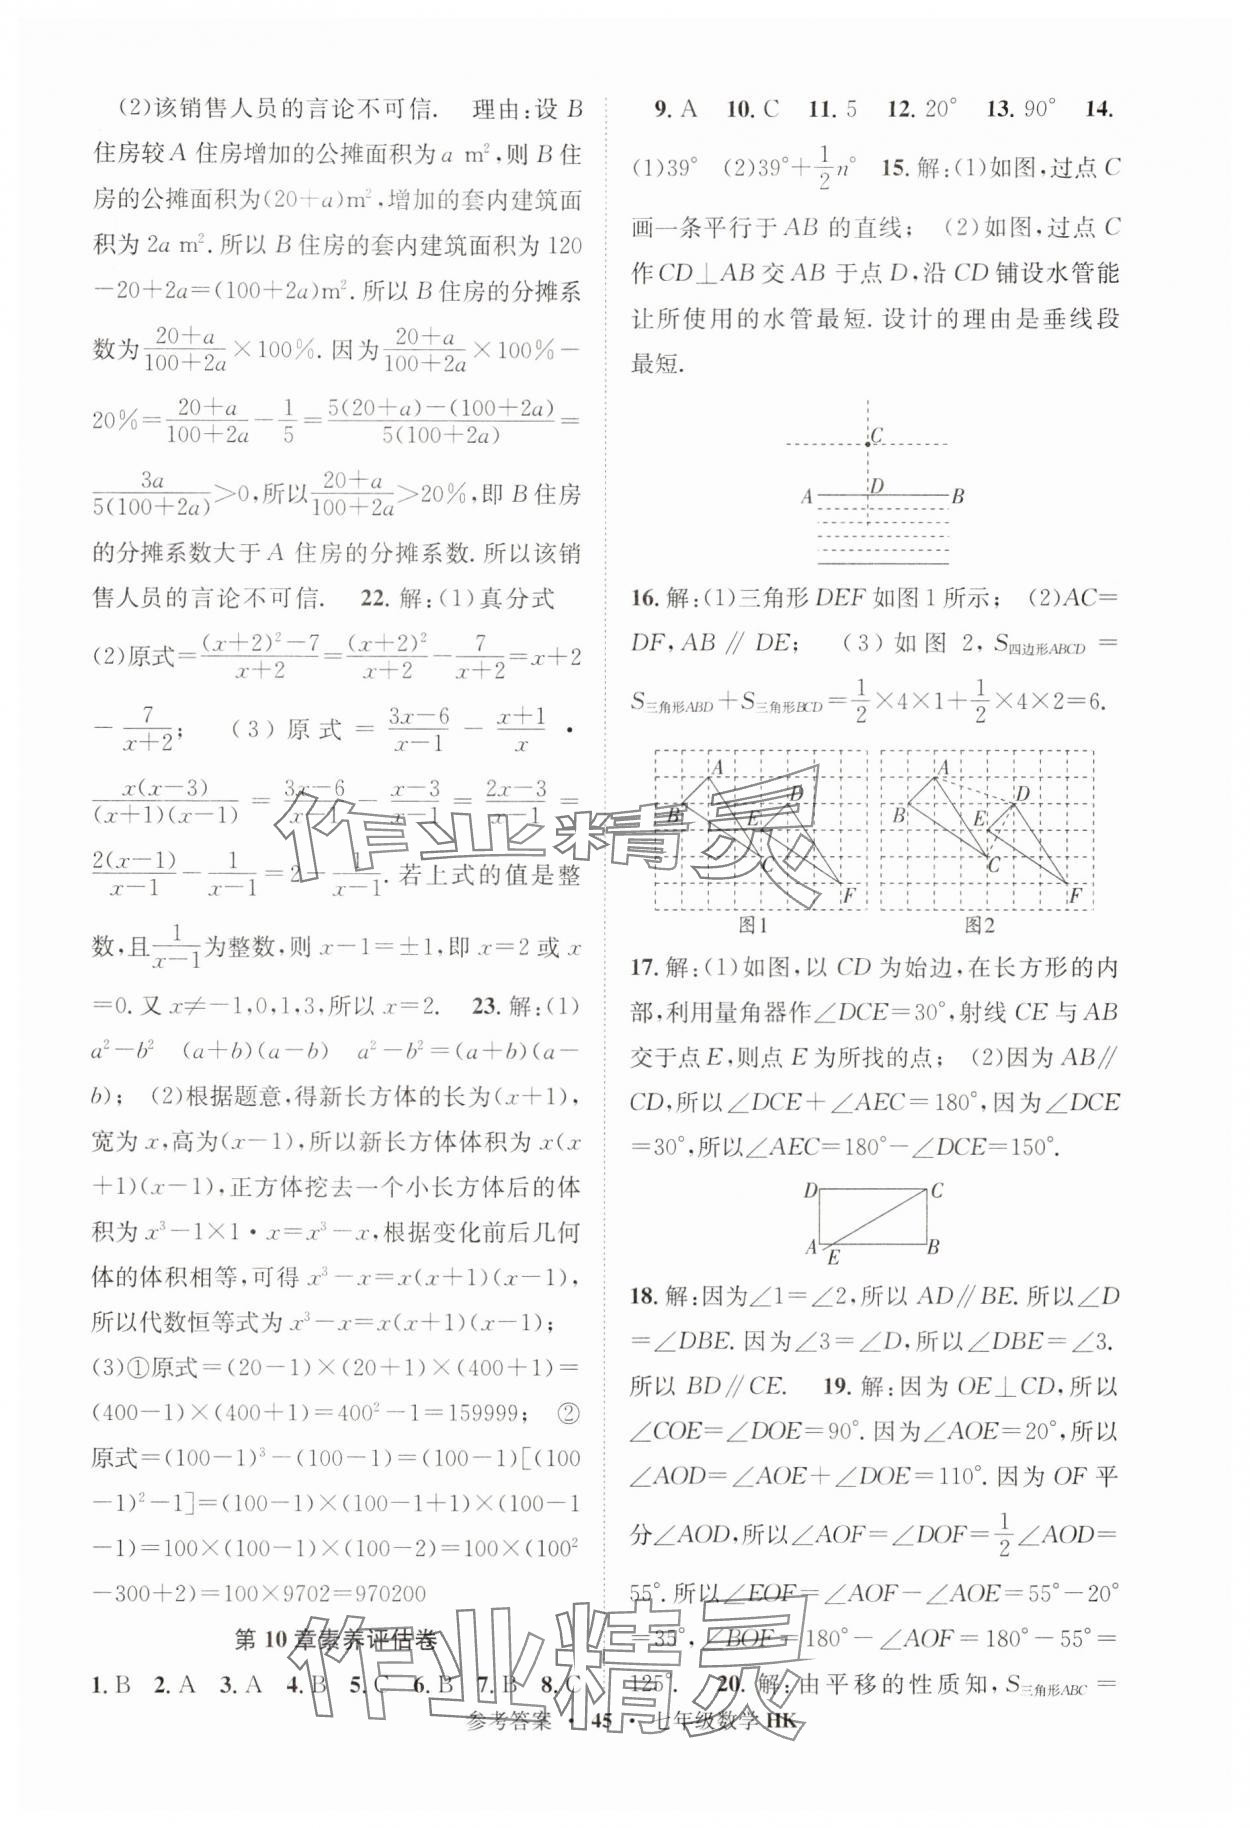 (2)该销售人员的言论不可信. 理由:设 B
住房较 A 住房增加的公摊面积为 a m²,则 B 住
房的公摊面积为(20+a)m²,增加的套内建筑面
积为 2a m².所以 B 住房的套内建筑面积为 120
−20+2a=(100+2a)m².所以 B 住房的分摊系
数为\frac{20+a}{100+2a}×100%.因为\frac{20+a}{100+2a}×100%−
20%=\frac{20+a}{100+2a}−\frac{1}{5}=\frac{5(20+a)−(100+2a)}{5(100+2a)}=
\frac{3a}{5(100+2a)}>0,所以\frac{20+a}{100+2a}>20%,即 B 住房
的分摊系数大于 A 住房的分摊系数.所以该销
售人员的言论不可信. 22.解:(1)真分式
(2)原式=\frac{(x+2)²−7}{x+2}=\frac{(x+2)²}{x+2}−\frac{7}{x+2}=x+2
−\frac{7}{x+2}; (3)原式=\frac{3x−6}{x−1}−\frac{x+1}{x}·
\frac{x(x−3)}{(x+1)(x−1)}=\frac{3x−6}{x−1}−\frac{x−3}{x−1}=\frac{2x−3}{x−1}=
\frac{2(x−1)}{x−1}−\frac{1}{x−1}=2−\frac{1}{x−1}.若上式的值是整
数,且\frac{1}{x−1}为整数,则 x−1=±1,即 x=2 或 x
=0.又 x≠−1,0,1,3,所以 x=2. 23.解:(1)
a²−b² (a+b)(a−b) a²−b²=(a+b)(a−
b); (2)根据题意,得新长方体的长为(x+1),
宽为 x,高为(x−1),所以新长方体体积为 x(x
+1)(x−1),正方体挖去一个小长方体后的体
积为 x³−1×1·x=x³−x,根据变化前后几何
体的体积相等,可得 x³−x=x(x+1)(x−1),
所以代数恒等式为 x³−x=x(x+1)(x−1);
(3)①原式=(20−1)×(20+1)×(400+1)=
(400−1)×(400+1)=400²−1=159999; ②
原式=(100−1)³−(100−1)=(100−1)[(100
−1)²−1]=(100−1)×(100−1+1)×(100−1
−1)=100×(100−1)×(100−2)=100×(100²
−300+2)=100×9702=970200
第 10 章素养评估卷
1.B 2.A 3.A 4.B 5.C 6.B 7.B 8.C
9.A 10.C 11.5 12.20° 13.90° 14.
(1)39° (2)39°+\frac{1}{2}n° 15.解:(1)如图,过点 C
画一条平行于 AB 的直线; (2)如图,过点 C
作 CD⊥AB 交 AB 于点 D,沿 CD 铺设水管能
让所使用的水管最短.设计的理由是垂线段
最短.
C
A D B
16.解:(1)三角形 DEF 如图 1 所示; (2)AC=
DF,AB∥DE; (3)如图 2,S四边形ABCD=
S三角形ABD+S三角形BCD=\frac{1}{2}×4×1+\frac{1}{2}×4×2=6.
A B C D E F
图1
A B C D E F
图2
17.解:(1)如图,以 CD 为始边,在长方形的内
部,利用量角器作∠DCE=30°,射线 CE 与 AB
交于点 E,则点 E 为所找的点; (2)因为 AB∥
CD,所以∠DCE+∠AEC=180°,因为∠DCE
=30°,所以∠AEC=180°−∠DCE=150°.
D C
A E B
18.解:因为∠1=∠2,所以 AD∥BE.所以∠D
=∠DBE.因为∠3=∠D,所以∠DBE=∠3.
所以 BD∥CE. 19.解:因为 OE⊥CD,所以
∠COE=∠DOE=90°.因为∠AOE=20°,所以
∠AOD=∠AOE+∠DOE=110°.因为 OF 平
分∠AOD,所以∠AOF=∠DOF=\frac{1}{2}∠AOD=
55°.所以∠EOF=∠AOF−∠AOE=55°−20°
=35°,∠BOF=180°−∠AOF=180°−55°=
125°. 20.解:由平移的性质知,S三角形ABC=
参考答案·45·七年级数学 HK
作业精灵
作业精灵